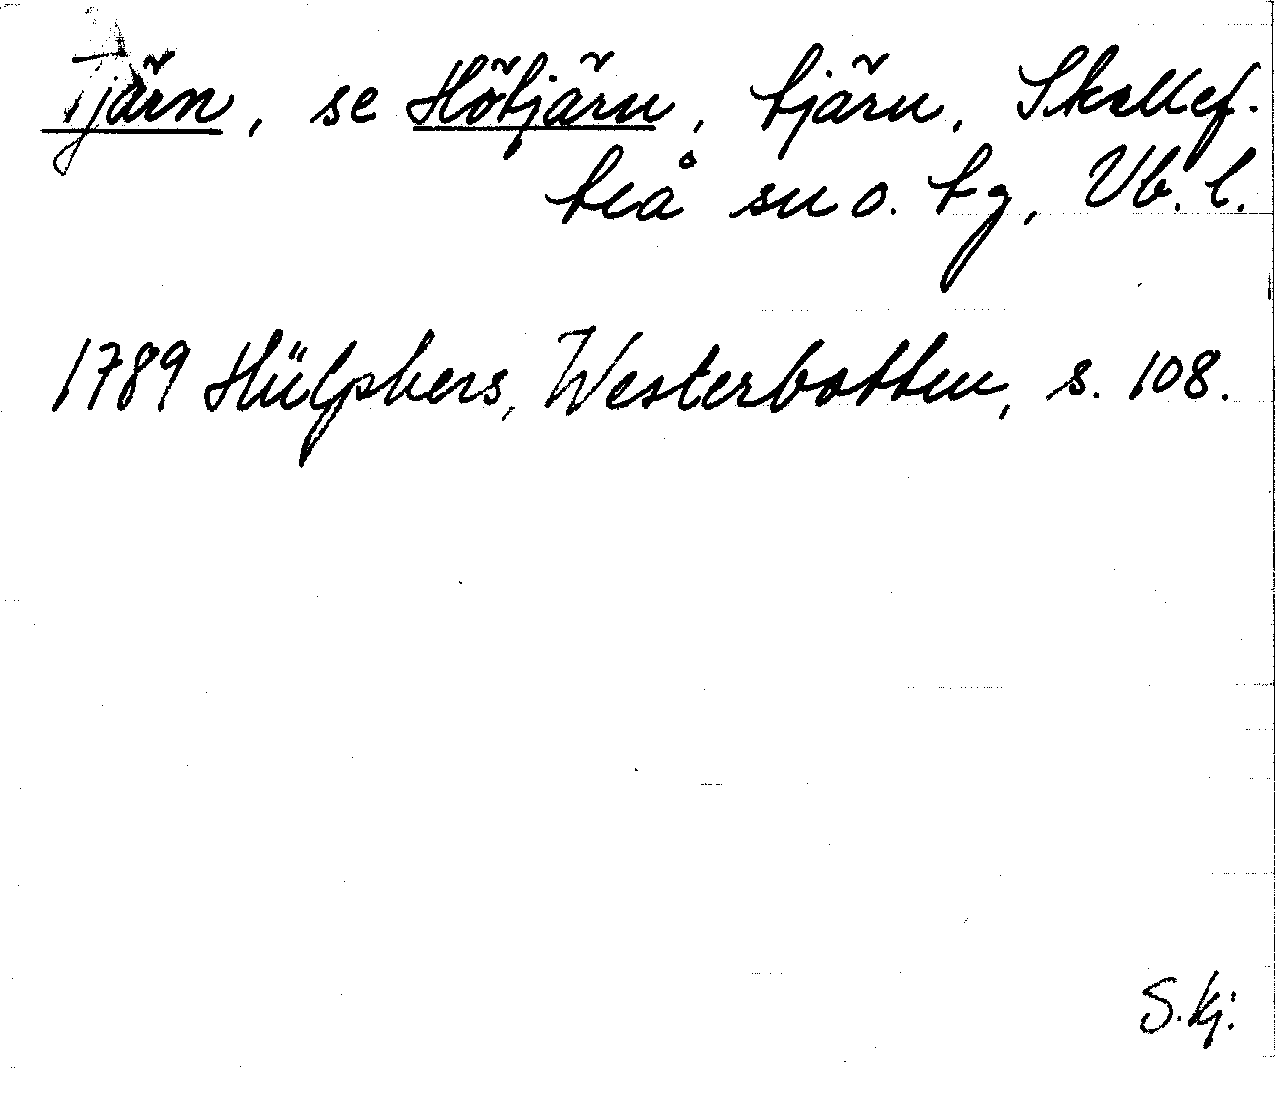 Tjärn, se Hötjärn, tjärn, Skellef-
teå sn o. tg, Vb. l.
1789 Hülphers, Westerbotten, s. 108.
S. kj: